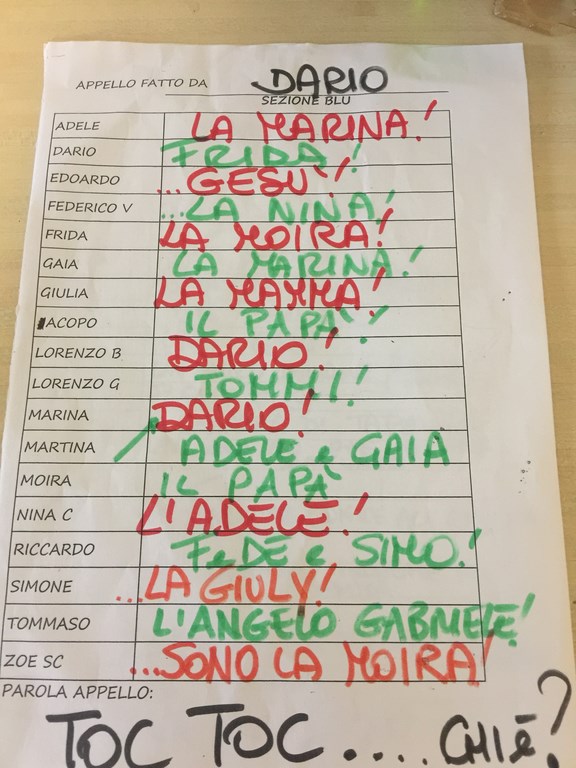 APPELLO FATTO DA DARIO
SEZIONE BLU
ADELE LA MARINA!
DARIO FRIDA!
EDOARDO ...GESU'!
FEDERICO V ...LA NINA!
FRIDA LA MOIRA!
GAIA LA MARINA!
GIULIA LA MAMMA!
ACOPO IL PAPA'!
LORENZO B DARIO!
LORENZO G TOMMI!
MARINA DARIO!
MARTINA ADELE e GAIA
MOIRA IL PAPA'
NINA C L'ADELE!
RICCARDO FeDE e SIMO!
SIMONE ...LA GIULY!
TOMMASO L'ANGELO GABRIELE!
ZOE SC ...SONO LA MOIRA!
PAROLA APPELLO:
TOC TOC .... CHI è?